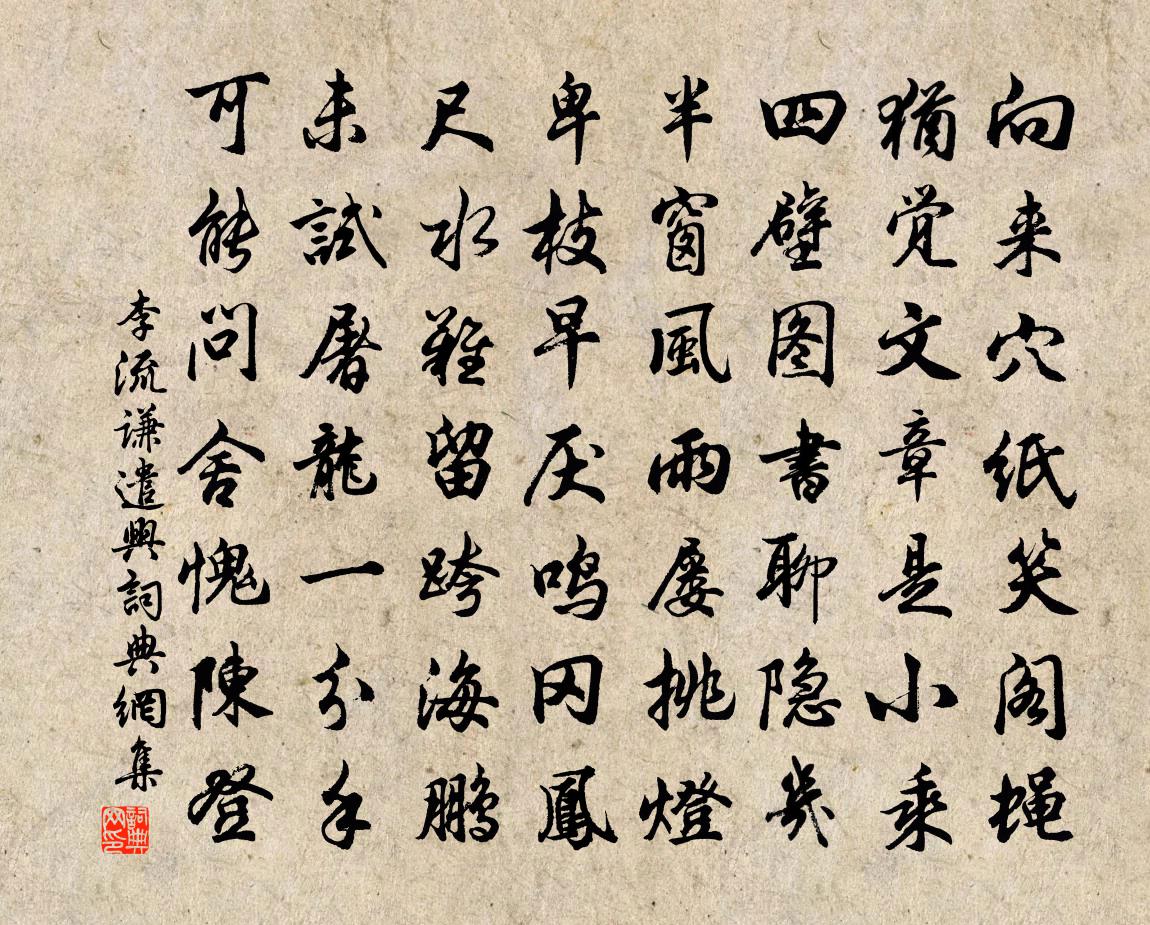 向来穴纸笑阁蝇
犹觉文章是小乘
四壁图書聊隐几
半窗風雨屡挑燈
卑枝早厌鸣冈鳳
尺水難留跨海鹏
未試屠龍一分手
可能问舍愧陳登
李流謙遣興詞典網集
詞典网印